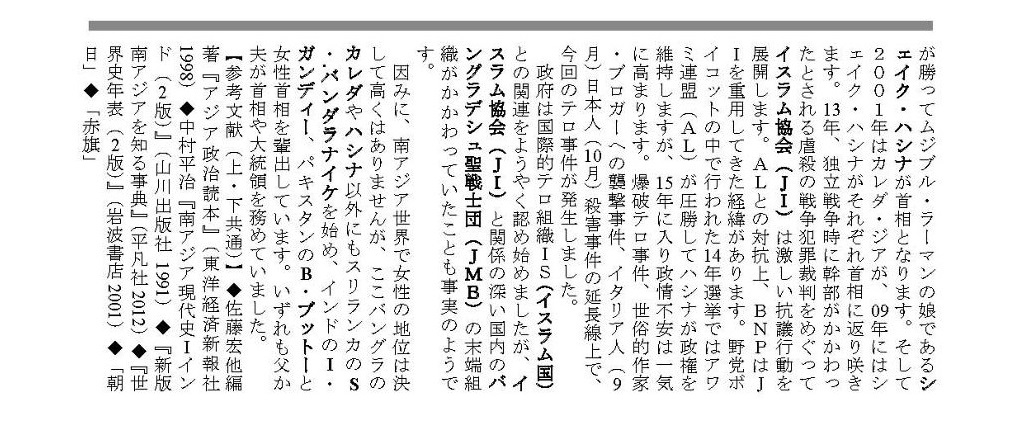 が勝ってムジブル・ラーマンの娘であるシ
ェイク・ハシナが首相となります。そして
２００１年はカレダ・ジアが、09年にはシ
ェイク・ハシナがそれぞれ首相に返り咲き
ます。13年、独立戦争時に幹部がかかわっ
たとされる虐殺の戦争犯罪裁判をめぐって
イスラム協会（ＪＩ）は激しい抗議行動を
展開します。ＡＬとの対抗上、ＢＮＰはＪ
Ｉを重用してきた経緯があります。野党ボ
イコットの中で行われた14年選挙ではアワ
ミ連盟（ＡＬ）が圧勝してハシナが政権を
維持しますが、15年に入り政情不安は一気
に高まります。爆破テロ事件、世俗的作家
・ブロガーへの襲撃事件、イタリア人（９
月）日本人（10月）殺害事件の延長線上で、
今回のテロ事件が発生しました。
　政府は国際的テロ組織ＩＳ（イスラム国）
との関連をようやく認め始めましたが、イ
スラム協会（ＪＩ）と関係の深い国内のバ
ングラデシュ聖戦士団（ＪＭＢ）の末端組
織がかかわっていたことも事実のようで
す。
　因みに、南アジア世界で女性の地位は決
して高くはありませんが、ここバングラの
カレダやハシナ以外にもスリランカのＳ
・バンダラナイケを始め、インドのＩ・
ガンディー、パキスタンのＢ・ブットーと
女性首相を輩出しています。いずれも父か
夫が首相や大統領を務めていました。
【参考文献（上・下共通）】◆佐藤宏他編
著『アジア政治読本』（東洋経済新報社
1998）◆中村平治『南アジア現代史Ⅰイン
ド（２版）』（山川出版社 1991）◆『新版
南アジアを知る事典』（平凡社 2012）◆『世
界史年表（２版）』（岩波書店 2001）◆「朝
日」◆「赤旗」